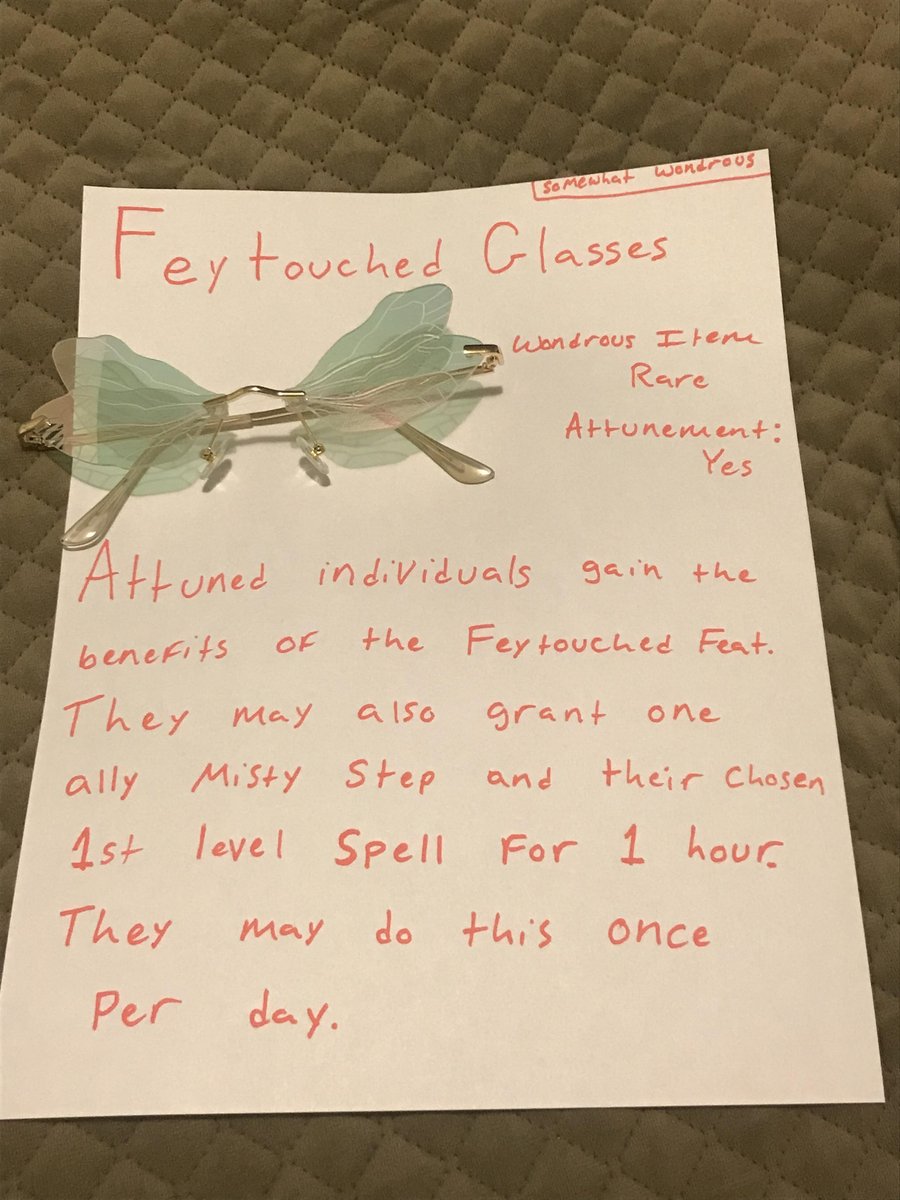 somewhat wondrous
Feytouched Glasses
Wondrous Item
Rare
Attunement:
Yes
Attuned individuals gain the
benefits of the Feytouched Feat.
They may also grant one
ally Misty Step and their chosen
1st level Spell For 1 hour.
They may do this once
Per day.